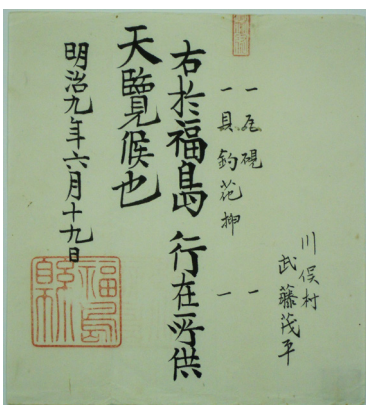 川俣村
武藤茂平
一 瓦硯 一
一 貝釣花挿 一
右於福島 行在所供
天覧候也
明治九年六月十九日
福島縣印